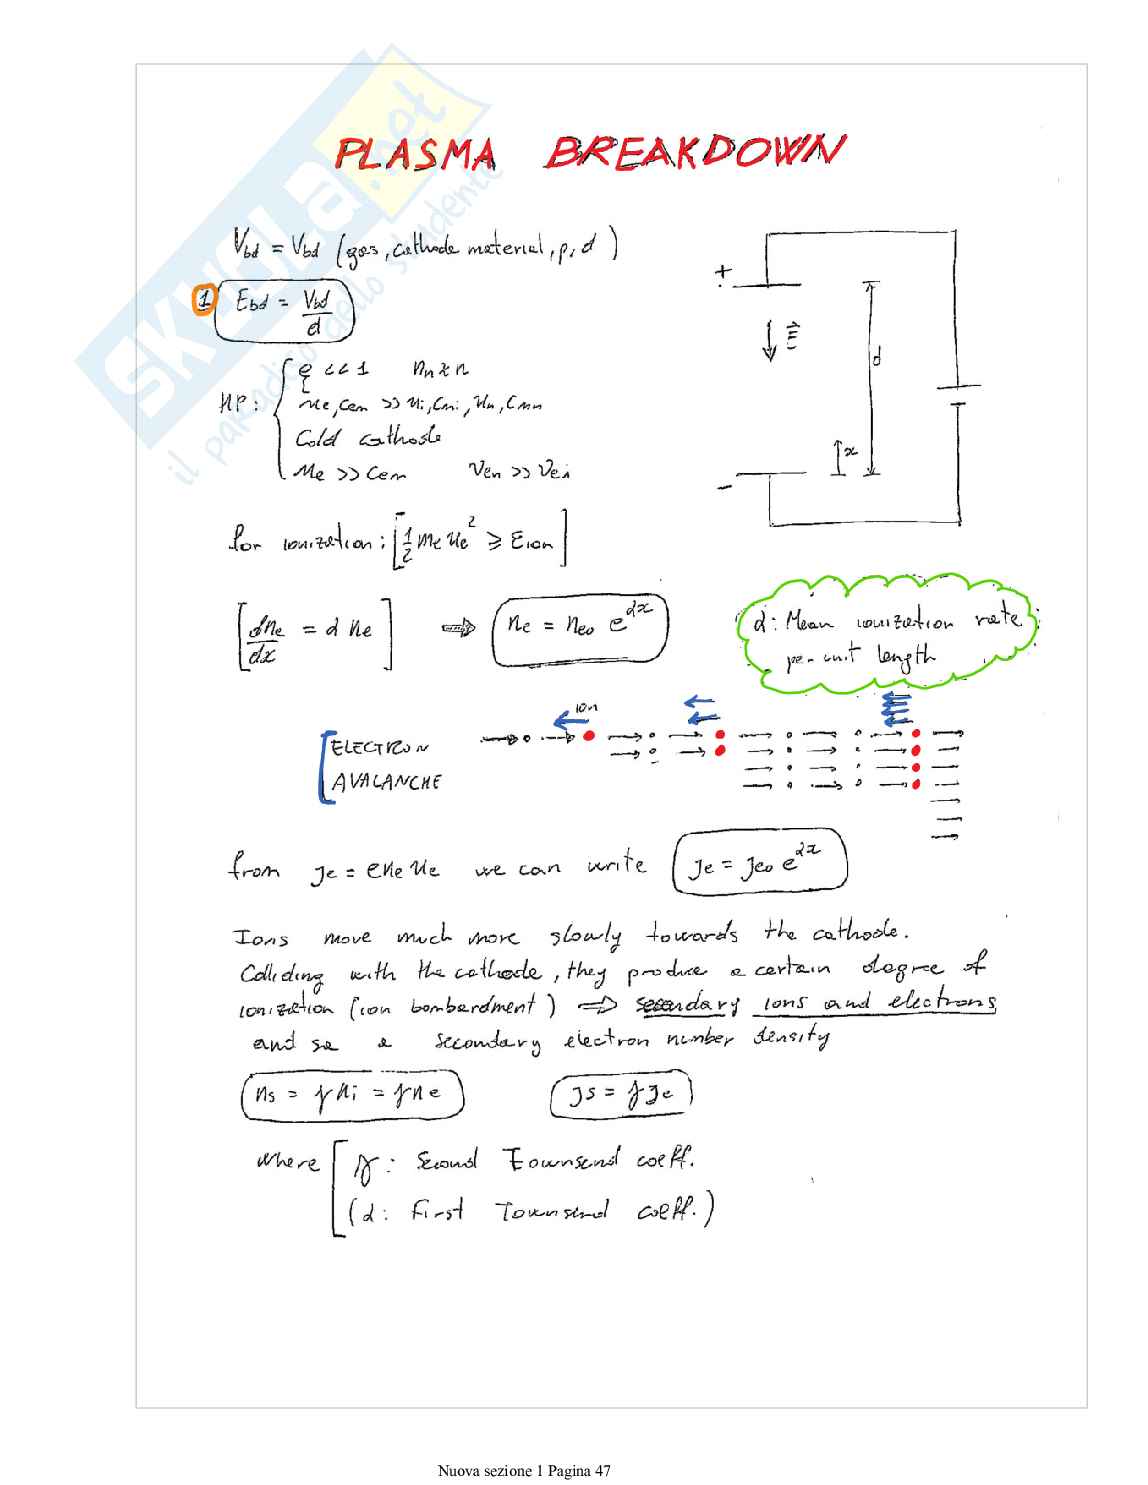 SKUOLA.net
il paradiso dello studente
PLASMA BREAKDOWN
Vbd = Vbd (gas, cathode material, p, d)
1 Ebd = Vbd/d
+
E
d
x
-
HP:
ξ << 1 nn ≈ n
ue, cem >> ui, cmi, un, cmn
Cold cathode
ue >> cem νen >> νei
for ionization: [1/2 me ue² ≥ Eion]
[dne/dx = α ne] ⇒ ne = neo e^αx
α: Mean ionization rate
per unit length
ion
ELECTRON
AVALANCHE
from Je = e ne ue we can write Je = Jeo e^αx
Ions move much more slowly towards the cathode.
Colliding with the cathode, they produce a certain degree of
ionization (ion bombardment) ⇒ secondary ions and electrons
and so a secondary electron number density
ns = γ ni = γ ne Js = γ Je
where [ γ: Second Townsend coeff.
(α: First Townsend coeff.)
Nuova sezione 1 Pagina 47